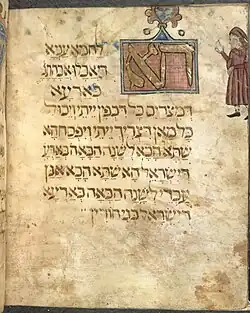 הא
לחמא עניא
דאכלו אבהתנא
בארעא
דמצרים כל דכפין ייתי וייכול
כל מאן דצריך ייתי ויפסחא
שתא הכא לשנה הבאה בארעא
דישראל האשתא הכא אנן
עבדי לשנה הבאה בארעא
דישראל בני חורין